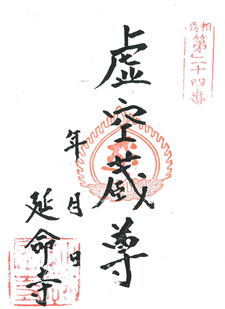 相馬
第二十四番
虚空蔵尊
年 月 日
延命寺